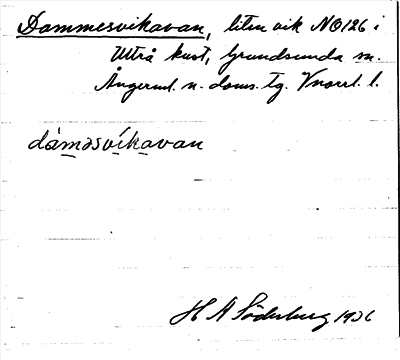 Dammesvikavan, liten vik NO126 i
Utrå kust, Grundsunda sn.
Ångerml. n. doms. tg. Vnorrl. l.
dámǝsvíkavan
H A Söderberg 1936